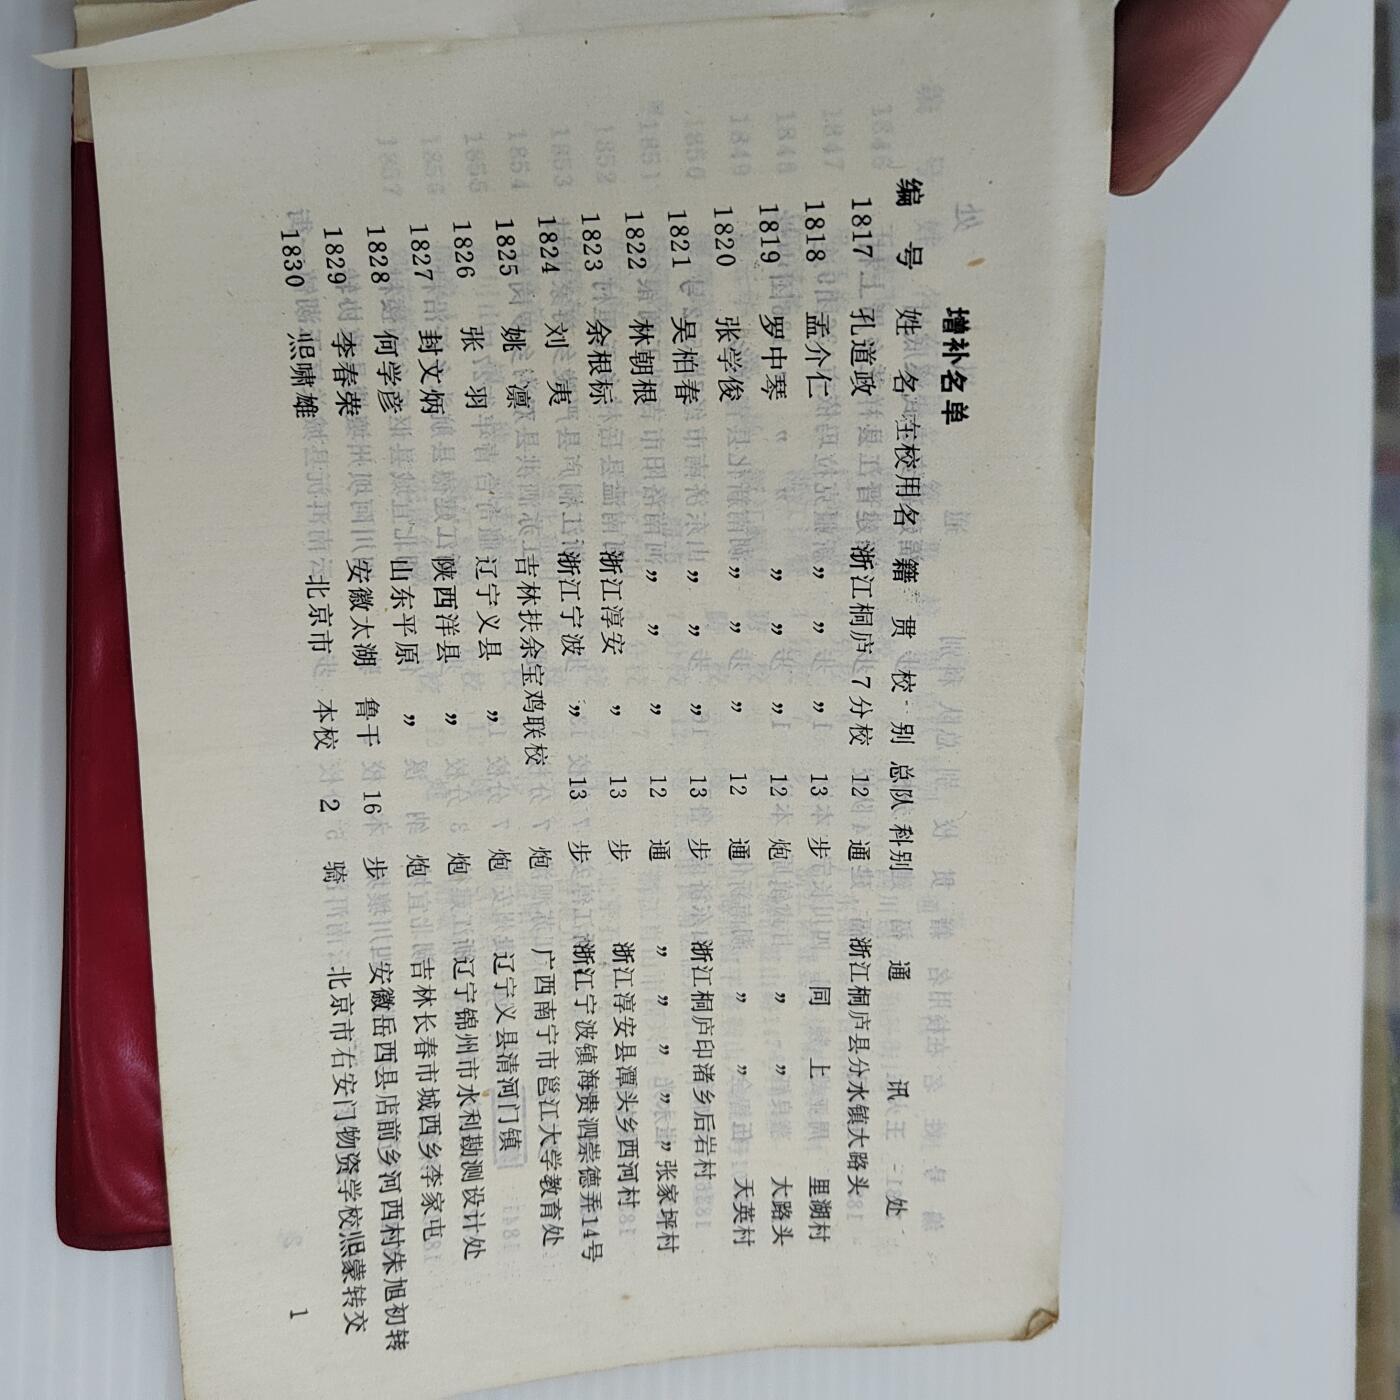 增补名单
编号 姓名 在校用名 籍贯 校别 总队 科别 通讯处
1817 孔道政 浙江桐庐 7分校 12 通 浙江桐庐县分水镇大路头
1818 孟介仁 〃 〃 〃 13 步 同上 里湖村
1819 罗中琴 〃 〃 〃 12 炮 〃 〃 大路头
1820 张学俊 〃 〃 〃 12 通 〃 〃 天英村
1821 吴柏春 〃 〃 〃 13 步 浙江桐庐印渚乡后岩村
1822 林朝根 〃 〃 〃 12 通 〃 〃 〃 〃 〃 张家坪村
1823 余根标 浙江淳安 〃 13 步 浙江淳安县潭头乡西河村
1824 刘夷 浙江宁波 〃 13 步 浙江宁波镇海贵泗崇德弄14号
1825 姚凛 吉林扶余 宝鸡联校 炮 广西南宁市邕江大学教育处
1826 张羽 辽宁义县 〃 炮 辽宁义县清河门镇
1827 封文炳 陕西洋县 〃 炮 辽宁锦州市水利勘测设计处
1828 何学彦 山东平原 〃 炮 吉林长春市城西乡李家屯
1829 李春荣 安徽太湖 鲁干 16 步 安徽岳西县店前乡河西村朱旭初转
1830 啸雄 北京市 本校 2 骑 北京市右安门物资学校蒙转交
1